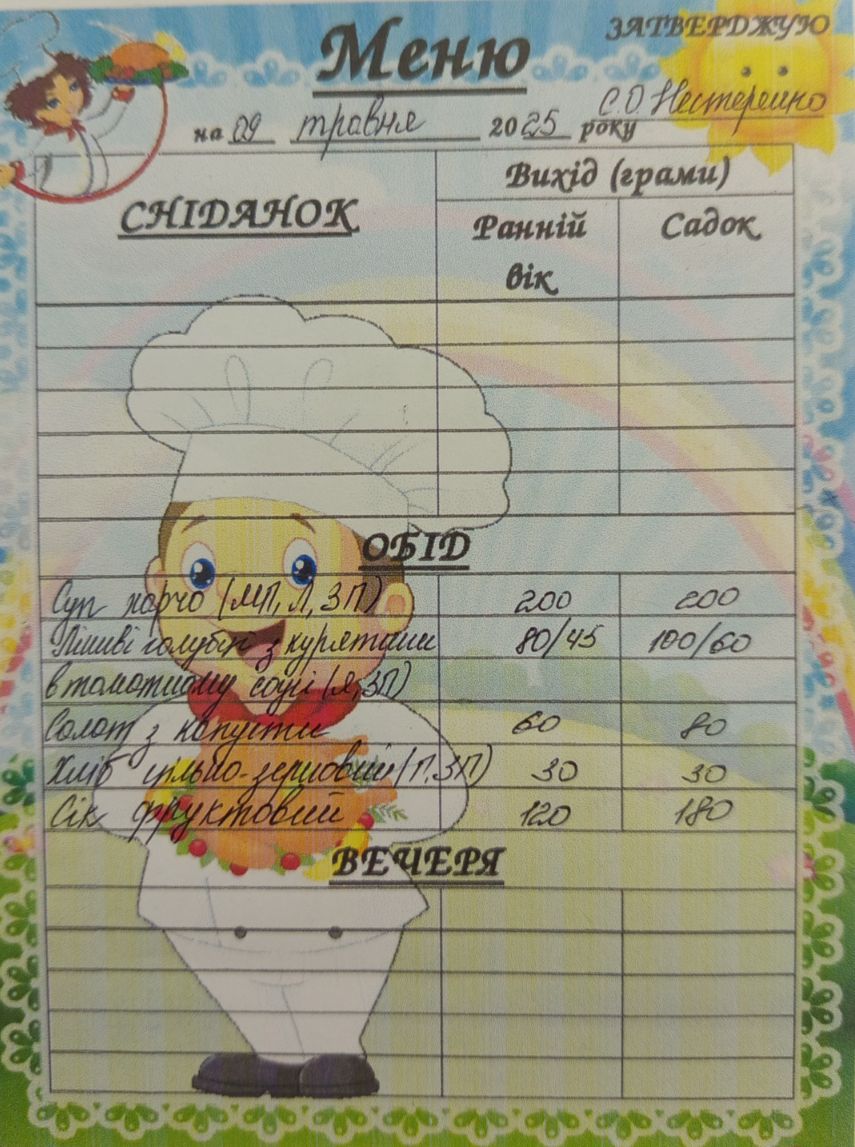 Меню
ЗАТВЕРДЖУЮ
С.О. Нестеренко
на 09 травня 2025 року
СНІДАНОК
Вихід (грами)
Ранній вік
Садок
ОБІД
Суп харчо (МП, Л, ЗП) 200 200
Ліниві голубці з курятини 80/45 100/60
в томатному соусі (Я, ЗП)
Салат з капусти 60 80
Хліб цільно-зерновий (П, ЗП) 30 30
Сік фруктовий 120 180
ВЕЧЕРЯ